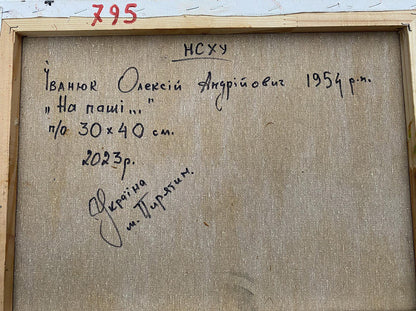 795
НСХУ
Іванюк Олексій Андрійович 1954 р.н.
„На паші..."
п/о 30×40 см.
2023р.
Україна
м. Пирятин.